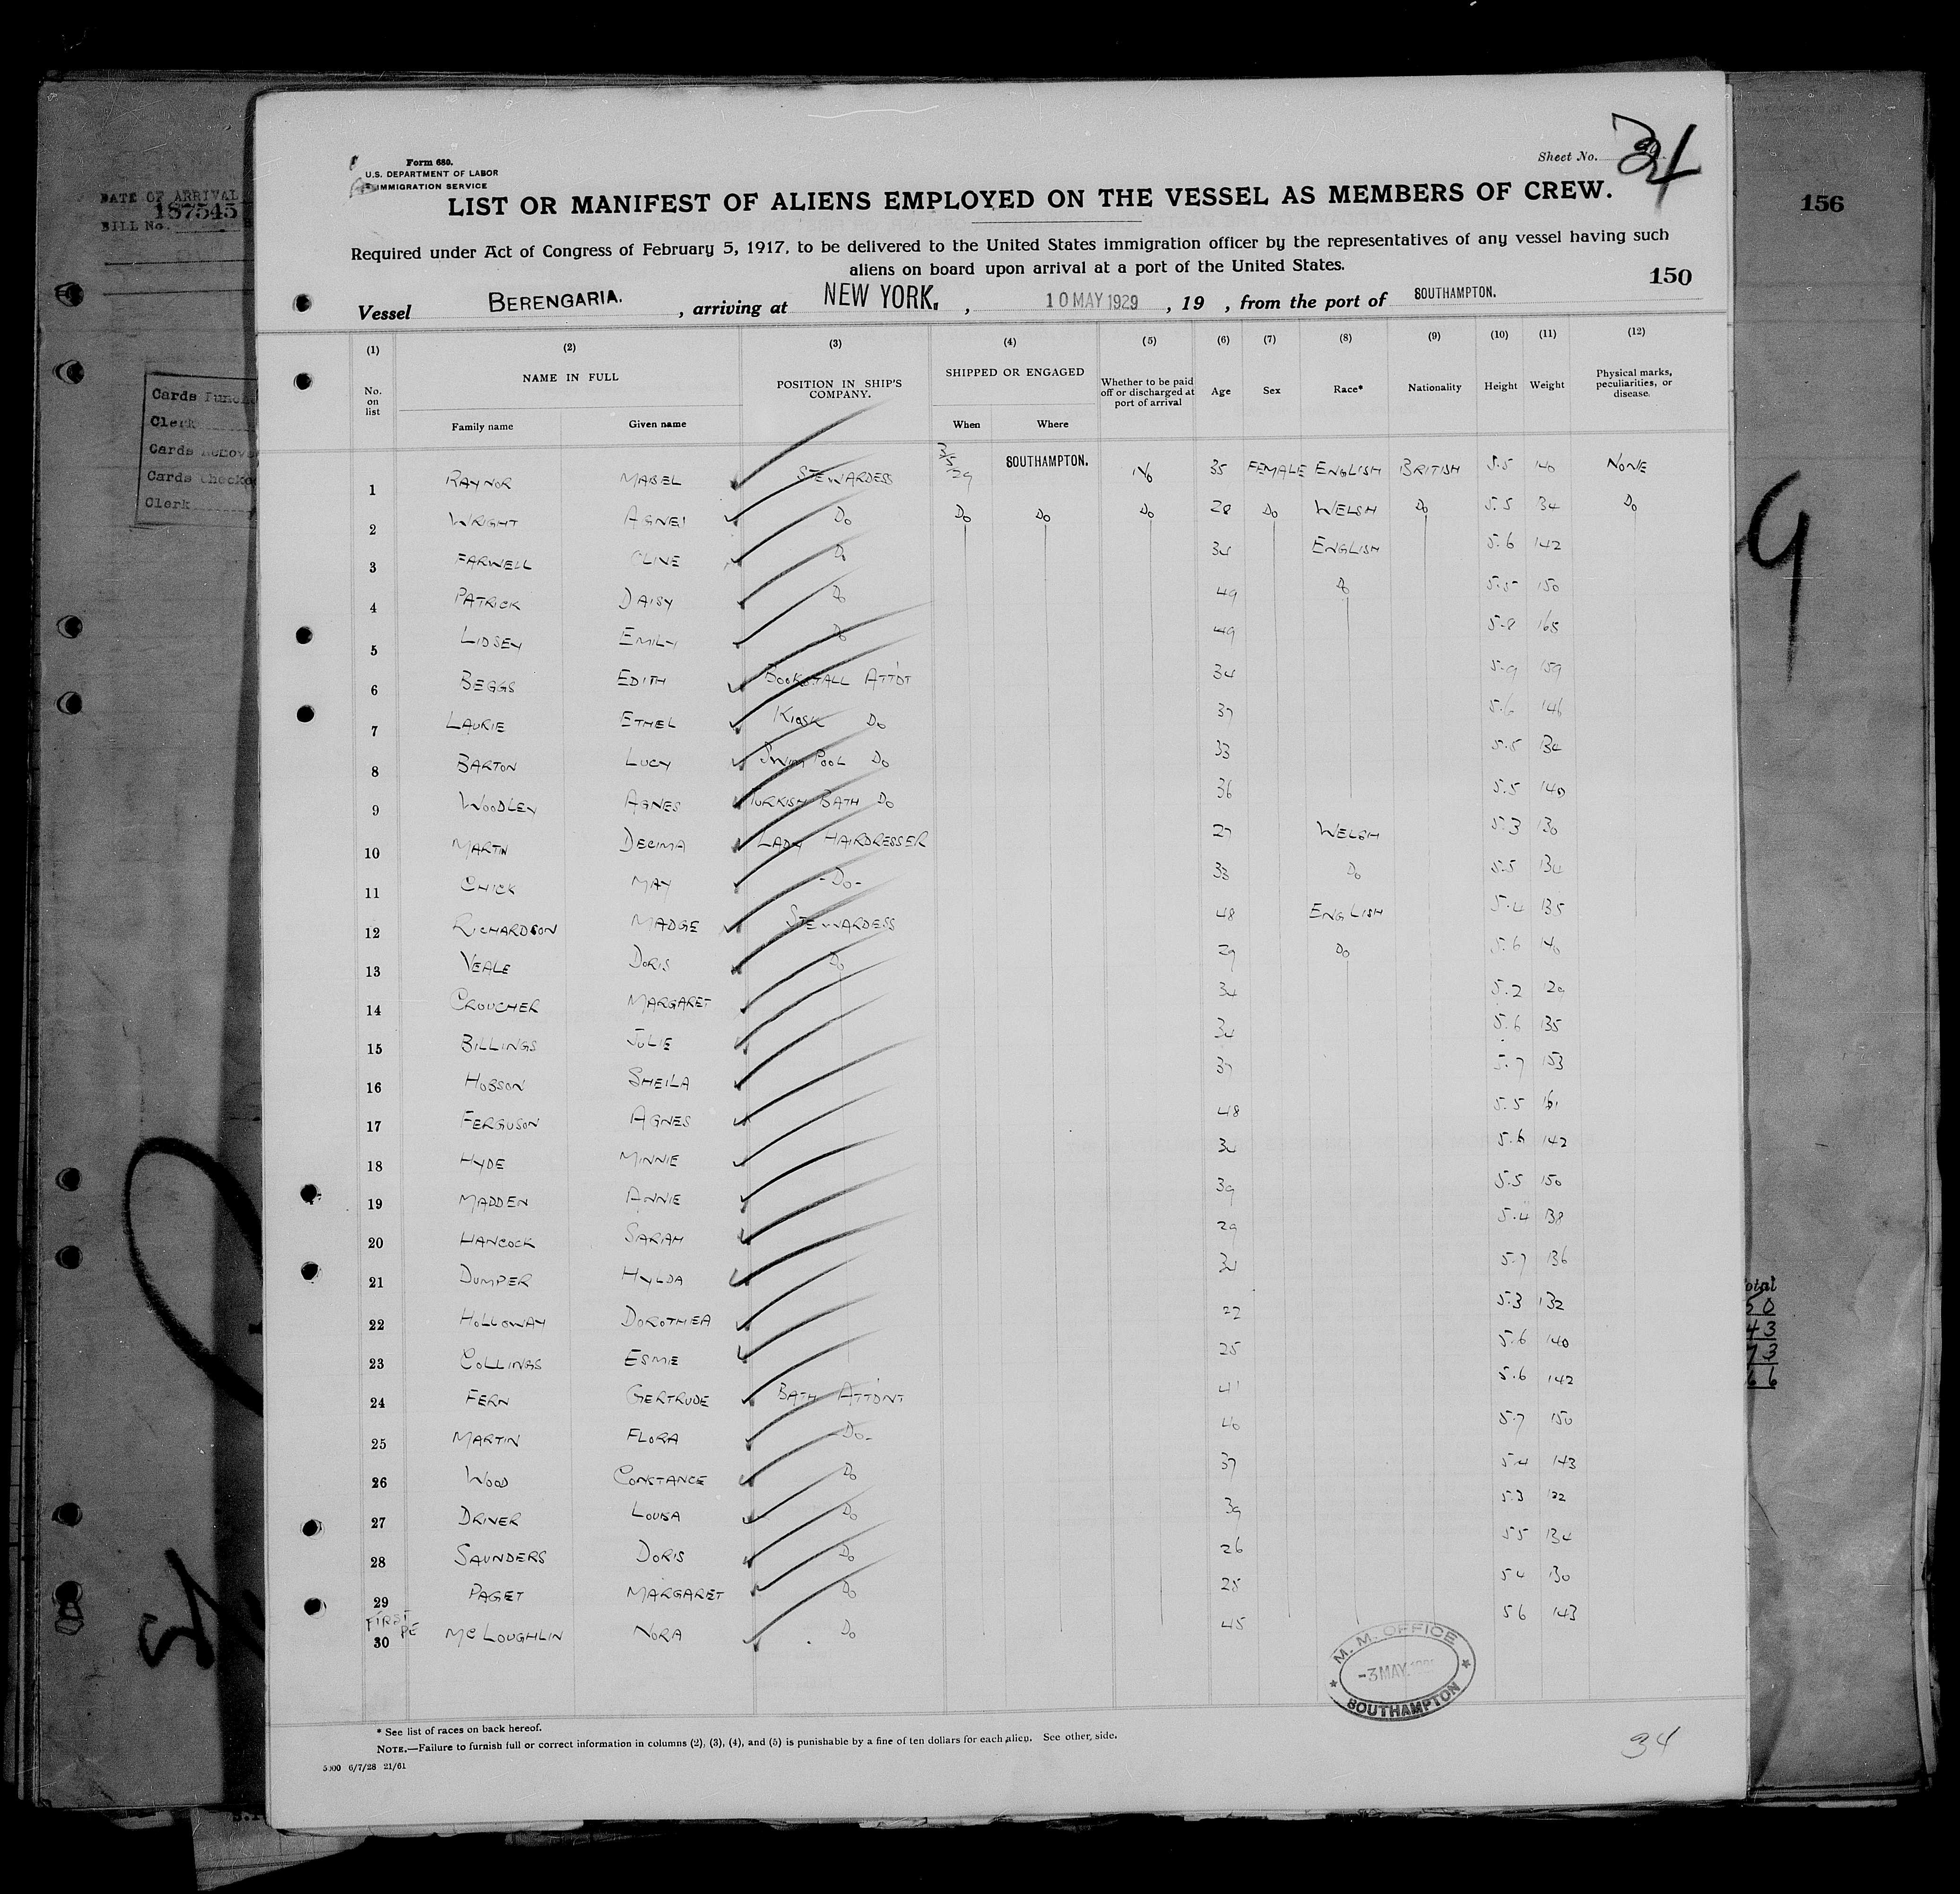 DATE OF ARRIVAL
187545
BILL No.
Cards
Clerk
Cards
Cards checked
Clerk
156
otal
50
43
73
66
9
Form 680.
U.S. DEPARTMENT OF LABOR
IMMIGRATION SERVICE
Sheet No. 34
LIST OR MANIFEST OF ALIENS EMPLOYED ON THE VESSEL AS MEMBERS OF CREW.
Required under Act of Congress of February 5, 1917, to be delivered to the United States immigration officer by the representatives of any vessel having such
aliens on board upon arrival at a port of the United States.
150
Vessel BERENGARIA. , arriving at NEW YORK. , 10 MAY 1929 , 19 , from the port of SOUTHAMPTON.
(1) (2) (3) (4) (5) (6) (7) (8) (9) (10) (11) (12)
No. on list NAME IN FULL POSITION IN SHIP'S COMPANY. SHIPPED OR ENGAGED Whether to be paid off or discharged at port of arrival Age Sex Race* Nationality Height Weight Physical marks, peculiarities, or disease.
Family name Given name When Where
1 RAYNOR MABEL STEWARDESS 3/5/29 SOUTHAMPTON. No 35 FEMALE ENGLISH BRITISH 5.5 140 NONE
2 WRIGHT AGNES Do Do Do Do 28 Do WELSH Do 5.5 134 Do
3 FARWELL OLINE Do 34 ENGLISH 5.6 142
4 PATRICK DAISY Do 49 Do 5.5 150
5 LIDSEY EMILY Do 49 5.8 165
6 BEGGS EDITH BOOKSTALL ATT'DT 34 5.9 159
7 LAURIE ETHEL KIOSK Do 37 5.6 146
8 BARTON LUCY SWIM POOL Do 33 5.5 134
9 WOODLEY AGNES TURKISH BATH Do 36 5.5 140
10 MARTIN DECIMA LADY HAIRDRESSER 27 WELSH 5.3 130
11 CHICK MAY -Do- 33 Do 5.5 134
12 RICHARDSON MADGE STEWARDESS 48 ENGLISH 5.4 135
13 VEALE DORIS Do 29 Do 5.6 140
14 CROUCHER MARGARET 34 5.2 120
15 BILLINGS JULIE 34 5.6 135
16 HOBSON SHEILA 37 5.7 153
17 FERGUSON AGNES 48 5.5 161
18 HYDE MINNIE 34 5.6 142
19 MADDEN ANNIE 39 5.5 150
20 HANCOCK SARAH 29 5.4 138
21 DUMPER HYLDA 34 5.7 136
22 HOLLOWAY DOROTHEA 22 5.3 132
23 COLLINGS ESMIE 25 5.6 140
24 FERN GERTRUDE BATH ATTDNT 41 5.6 142
25 MARTIN FLORA -Do- 40 5.7 150
26 WOOD CONSTANCE Do 37 5.4 143
27 DRIVER LOUISA Do 39 5.3 122
28 SAUNDERS DORIS Do 26 5 5 134
29 PAGET MARGARET Do 25 5 4 130
FIRST
30 McLOUGHLIN NORA Do 45 5 6 143
M. M. OFFICE
-3 MAY
SOUTHAMPTON
* See list of races on back hereof.
NOTE.—Failure to furnish full or correct information in columns (2), (3), (4), and (5) is punishable by a fine of ten dollars for each alien. See other side.
5000 6/7/28 21/61
34